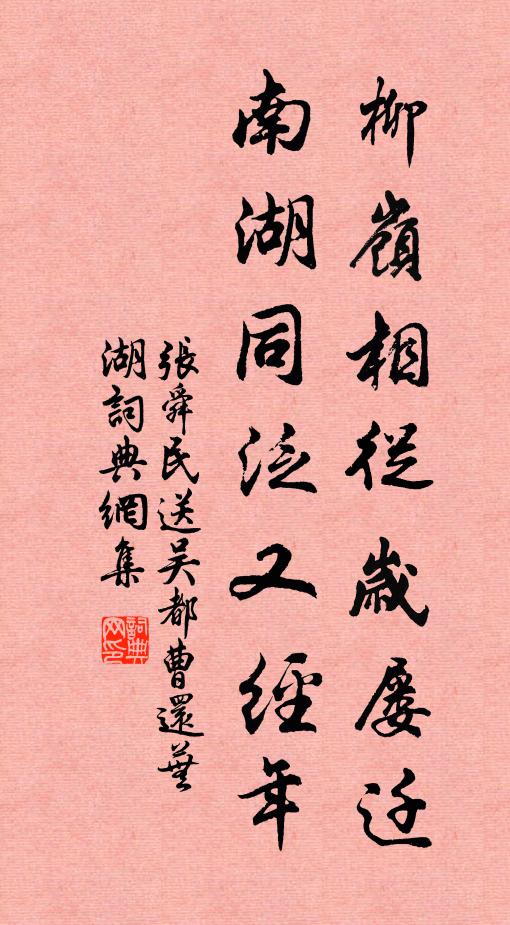 柳嶺相從歲屡迁
南湖同泛又經年
張舜民送吴都曹還蕪
湖詞典網集
詞典网印